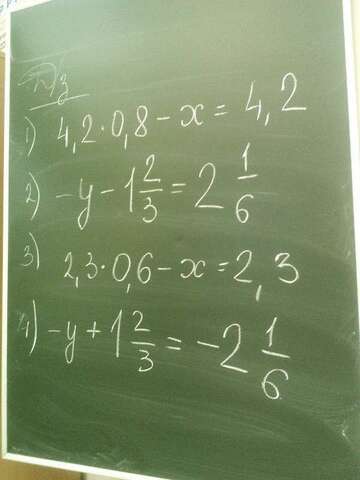 д/з
1) 4,2·0,8-x=4,2
2) -y-1 2/3=2 1/6
3) 2,3·0,6-x=2,3
4) -y+1 2/3=-2 1/6